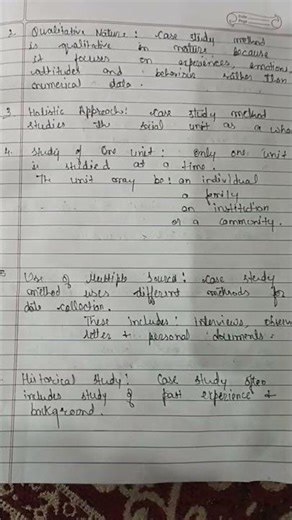 2. Qualitative Nature: Case study method
is qualitative in nature because
it focuses on experiences, emotions,
attitudes and behaviour rather than
numerical data.
3. Holistic Approach: Case study method
studies the social unit as a whole
4. Study of One unit: Only one unit
is studied at a time.
The unit may be: an individual
a family
an institution
or a community.
Use of Multiple Sources: Case study
method uses different methods for
data collection.
These includes: interviews,
letters + personal documents.
Historical Study: Case study often
includes study of past experience +
background.